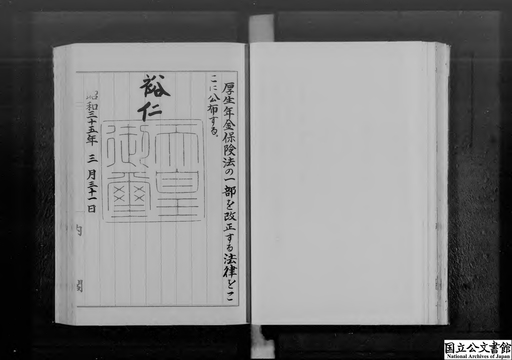 厚生年金保険法の一部を改正する法律をこ
こに公布する。
裕仁
天皇
御璽
昭和三十五年三月三十一日
内閣
国立公文書館
National Archives of Japan